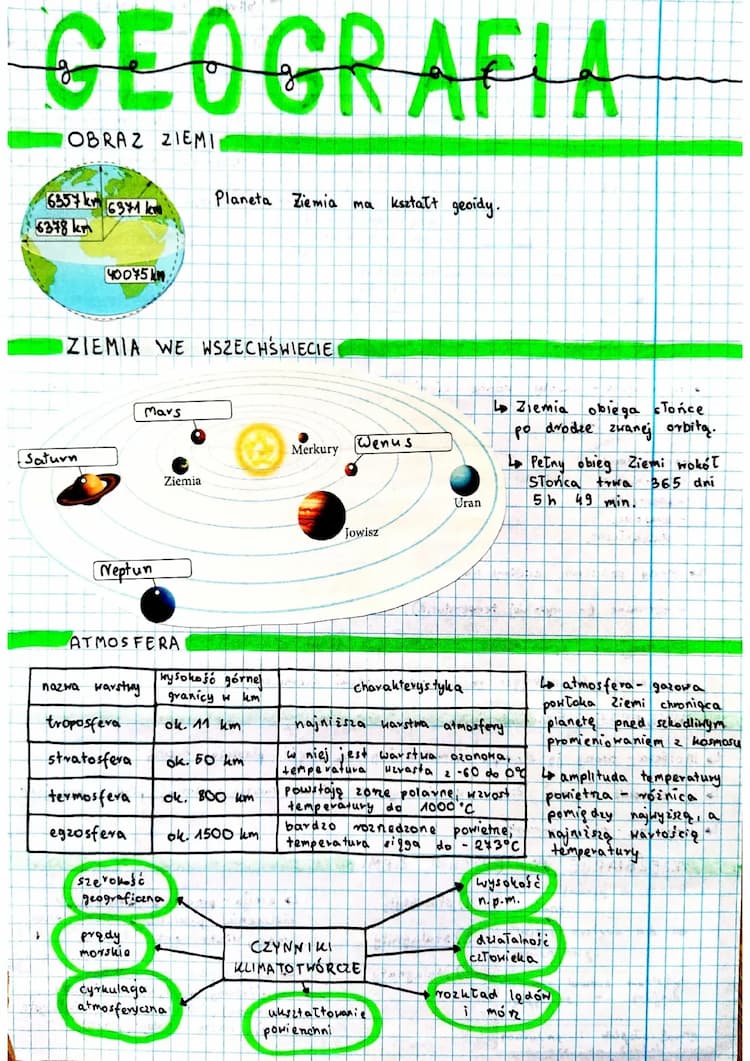 GEOGRAFIA
geografia
OBRAZ ZIEMI
6357 km
6371 km
6378 km
40075 km
Planeta Ziemia ma kształt geoidy.
ZIEMIA WE WSZECHŚWIECIE
Mars
Merkury
Wenus
Saturn
Ziemia
Uran
Jowisz
Neptun
↳ Ziemia obiega słońce
po drodze zwanej orbitą.
↳ Pełny obieg Ziemi wokół
Słońca trwa 365 dni
5 h 49 min.
ATMOSFERA
nazwa warstwy
wysokość górnej
granicy w km
charakterystyka
troposfera
ok. 11 km
najniższa warstwa atmosfery
stratosfera
ok. 50 km
w niej jest warstwa ozonowa,
temperatura wzrasta z -60 do 0°C
termosfera
ok. 800 km
powstają zorze polarne, wzrost
temperatury do 1000°C
egzosfera
ok. 1500 km
bardzo rozrzedzone powietrze,
temperatura sięga do -273°C
↳ atmosfera - gazowa
powłoka Ziemi chroniąca
planetę przed szkodliwym
promieniowaniem z kosmosu
↳ amplituda temperatury
powietrza - różnica
pomiędzy najwyższą, a
najniższą wartością
temperatury
CZYNNIKI
KLIMATOTWÓRCZE
szerokość
geograficzna
prądy
morskie
cyrkulacja
atmosferyczna
ukształtowanie
powierzchni
wysokość
n.p.m.
działalność
człowieka
rozkład lądów
i mórz